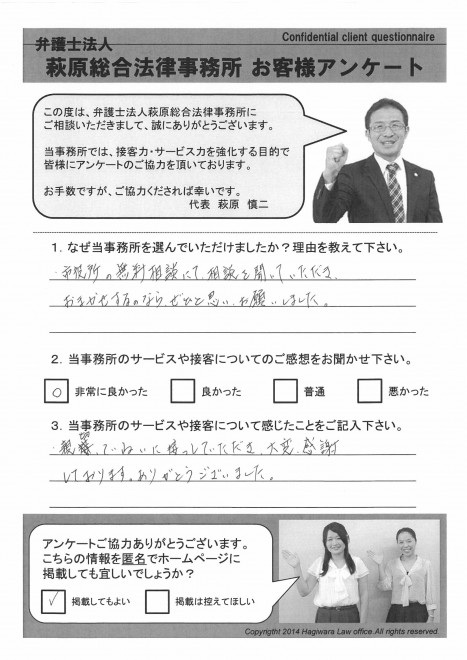 Confidential client questionnaire
弁護士法人
萩原総合法律事務所 お客様アンケート
この度は、弁護士法人萩原総合法律事務所に
ご相談いただきまして、誠にありがとうございます。
当事務所では、接客力・サービス力を強化する目的で
皆様にアンケートのご協力を頂いております。
お手数ですが、ご協力くだされば幸いです。
代表 萩原 慎二
1. なぜ当事務所を選んでいただけましたか？理由を教えて下さい。
・市役所の無料相談にて、相談を聞いていただき、
おまかせするのなら、ぜひと思い、お願いしました。
2. 当事務所のサービスや接客についてのご感想をお聞かせ下さい。
○ 非常に良かった 良かった 普通 悪かった
3. 当事務所のサービスや接客について感じたことをご記入下さい。
ていねいに接っしていただき、大変、感謝
しております。ありがとうございました。
アンケートご協力ありがとうございます。
こちらの情報を匿名でホームページに
掲載しても宜しいでしょうか？
✓ 掲載してもよい 掲載は控えてほしい
Copyright 2014 Hagiwara Law office.All rights reserved.